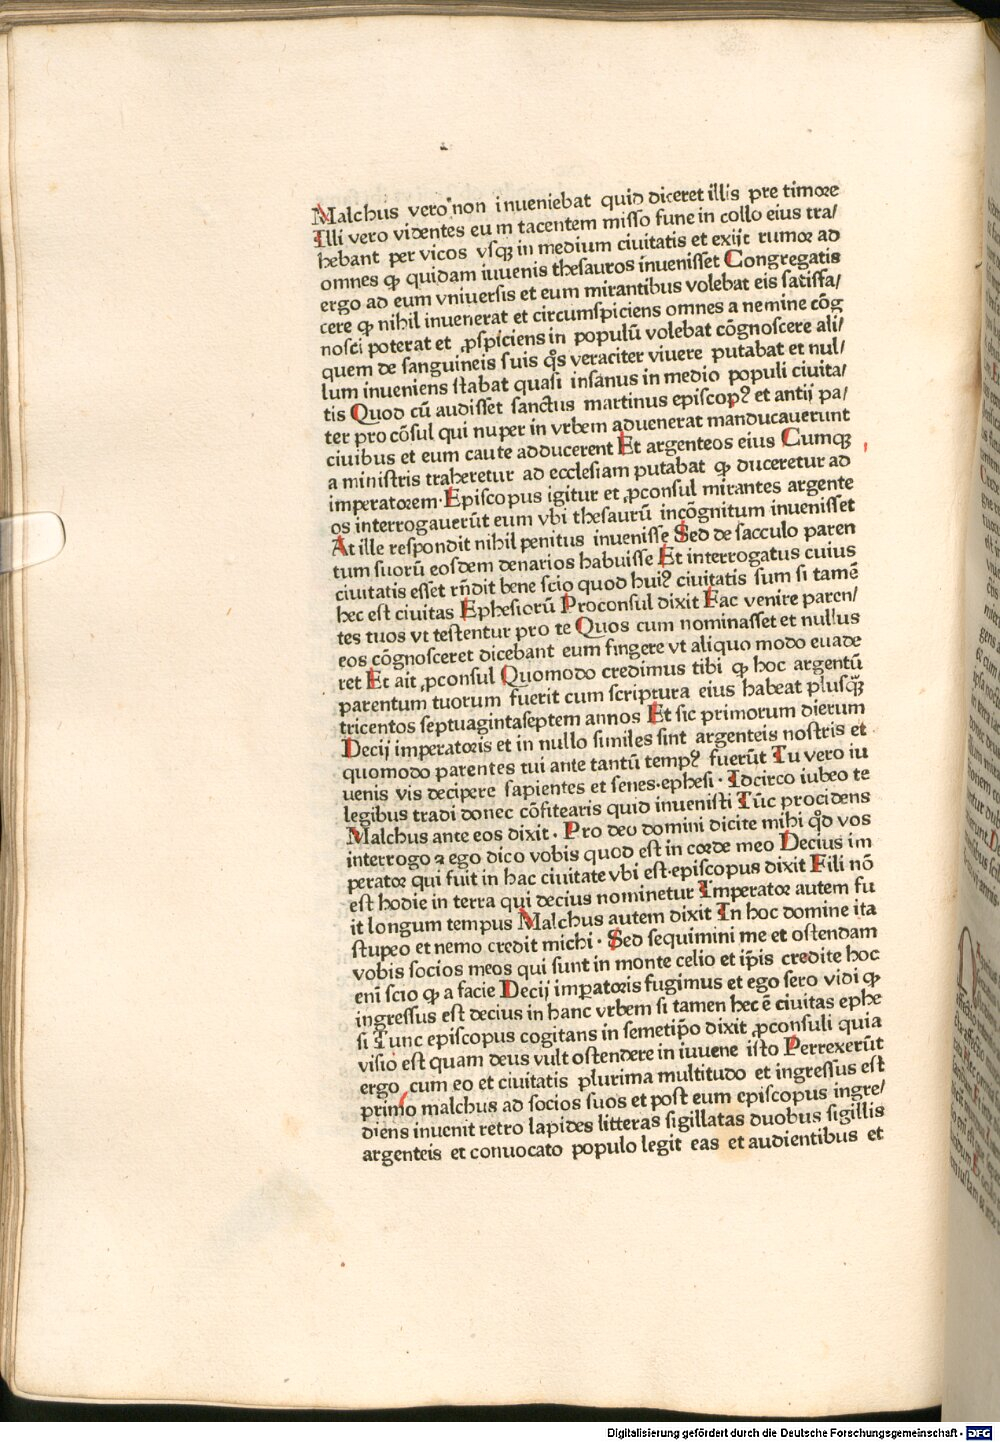 Malchus vero non inueniebat quid diceret illis pre timore
Illi vero videntes eum tacentem misso fune in collo eius tra/
hebant per vicos vsqꝫ in medium ciuitatis et exijt rumor ad
omnes ꝙ quidam iuuenis thesauros inuenisset Congregatis
ergo ad eum vniuersis et eum mirantibus volebat eis satisfa/
cere ꝙ nihil inuenerat et circumspiciens omnes a nemine cōg
nosci poterat et ꝓspiciens in populū volebat cōgnoscere ali/
quem de sanguineis suis q̊s veraciter viuere putabat et nul/
lum inueniens stabat quasi insanus in medio populi ciuita/
tis Quod cū audisset sanctus martinus episcopꝰ et antij pa/
ter pro cōsul qui nuper in vrbem aduenerat manducauerunt
ciuibus et eum caute adducerent Et argenteos eius Cumqꝫ
a ministris traheretur ad ecclesiam putabat ꝙ duceretur ad
imperatorem· Episcopus igitur et ꝓconsul mirantes argente
os interrogauerūt eum vbi thesaurū incōgnitum inuenisset
At ille respondit nihil penitus inuenisse Sed de sacculo paren
tum suorū eosdem denarios habuisse Et interrogatus cuius
ciuitatis esset rn̄dit bene scio quod huiꝰ ciuitatis sum si tamē
hec est ciuitas Ephesiorū Proconsul dixit Fac venire paren/
tes tuos vt testentur pro te Quos cum nominasset et nullus
eos cōgnosceret dicebant eum fingere vt aliquo modo euade
ret Et ait ꝓconsul Quomodo credimus tibi ꝙ hoc argentū
parentum tuorum fuerit cum scriptura eius habeat plusqꝫ̄
tricentos septuagintaseptem annos Et sic primorum dierum
Decij imperatoris et in nullo similes sint argenteis nostris et
quomodo parentes tui ante tantū tempꝰ fuerūt Tu vero iu
uenis vis decipere sapientes et senes·ephesi · Idcirco iubeo te
legibus tradi donec cōfitearis quid inuenisti Tūc procidens
Malchus ante eos dixit · Pro deo domini dicite mihi qd̄ vos
interrogo ꝛ ego dico vobis quod est in corde meo Decius im
perator qui fuit in hac ciuitate vbi est·episcopus dixit Fili nō
est hodie in terra qui decius nominetur Imperator autem fu
it longum tempus Malchus autem dixit In hoc domine ita
stupeo et nemo credit michi · Sed sequimini me et ostendam
vobis socios meos qui sunt in monte celio et ip̄is credite hoc
enī scio ꝙ a facie Decij imꝑatoris fugimus et ego sero vidi ꝙ
ingressus est decius in hanc vrbem si tamen hec ē ciuitas ephe
si Tunc episcopus cogitans in semetip̄o dixit ꝓconsuli quia
visio est quam deus vult ostendere in iuuene isto Perrexerūt
ergo cum eo et ciuitatis plurima multitudo et ingressus est
primo malchus ad socios suos et post eum episcopus ingre/
diens inuenit retro lapides litteras sigillatas duobus sigillis
argenteis et conuocato populo legit eas et audientibus et
Digitalisierung gefördert durch die Deutsche Forschungsgemeinschaft - DFG